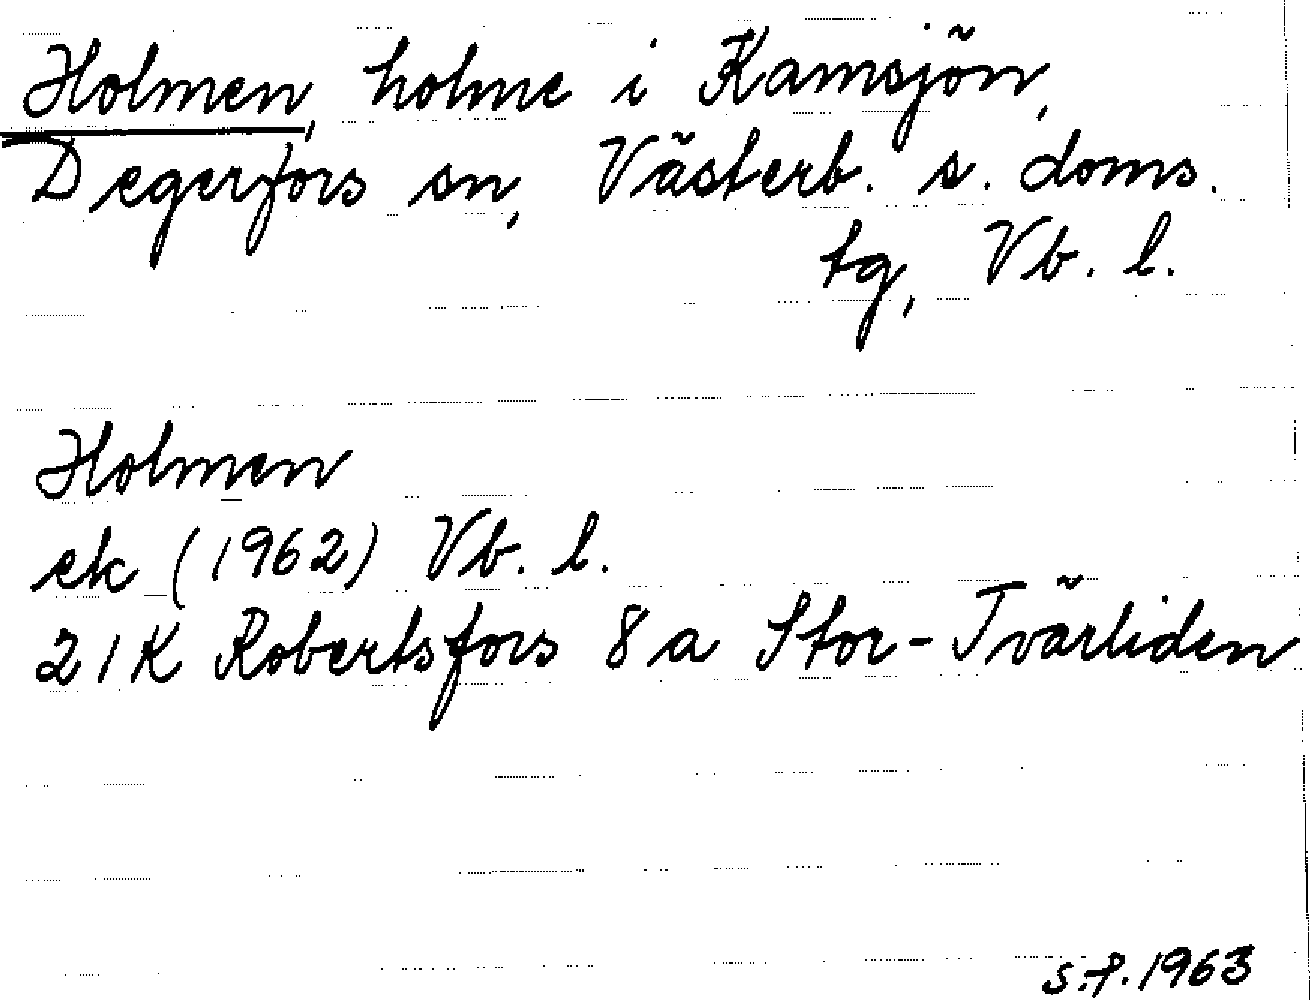 Holmen, holme i Kamsjön,
Degerfors sn, Västerb. s. doms.
tg, Vb. l.
Holmen
ek (1962) Vb. l.
21K Robertsfors 8a Stor-Tvärliden
S.F. 1963